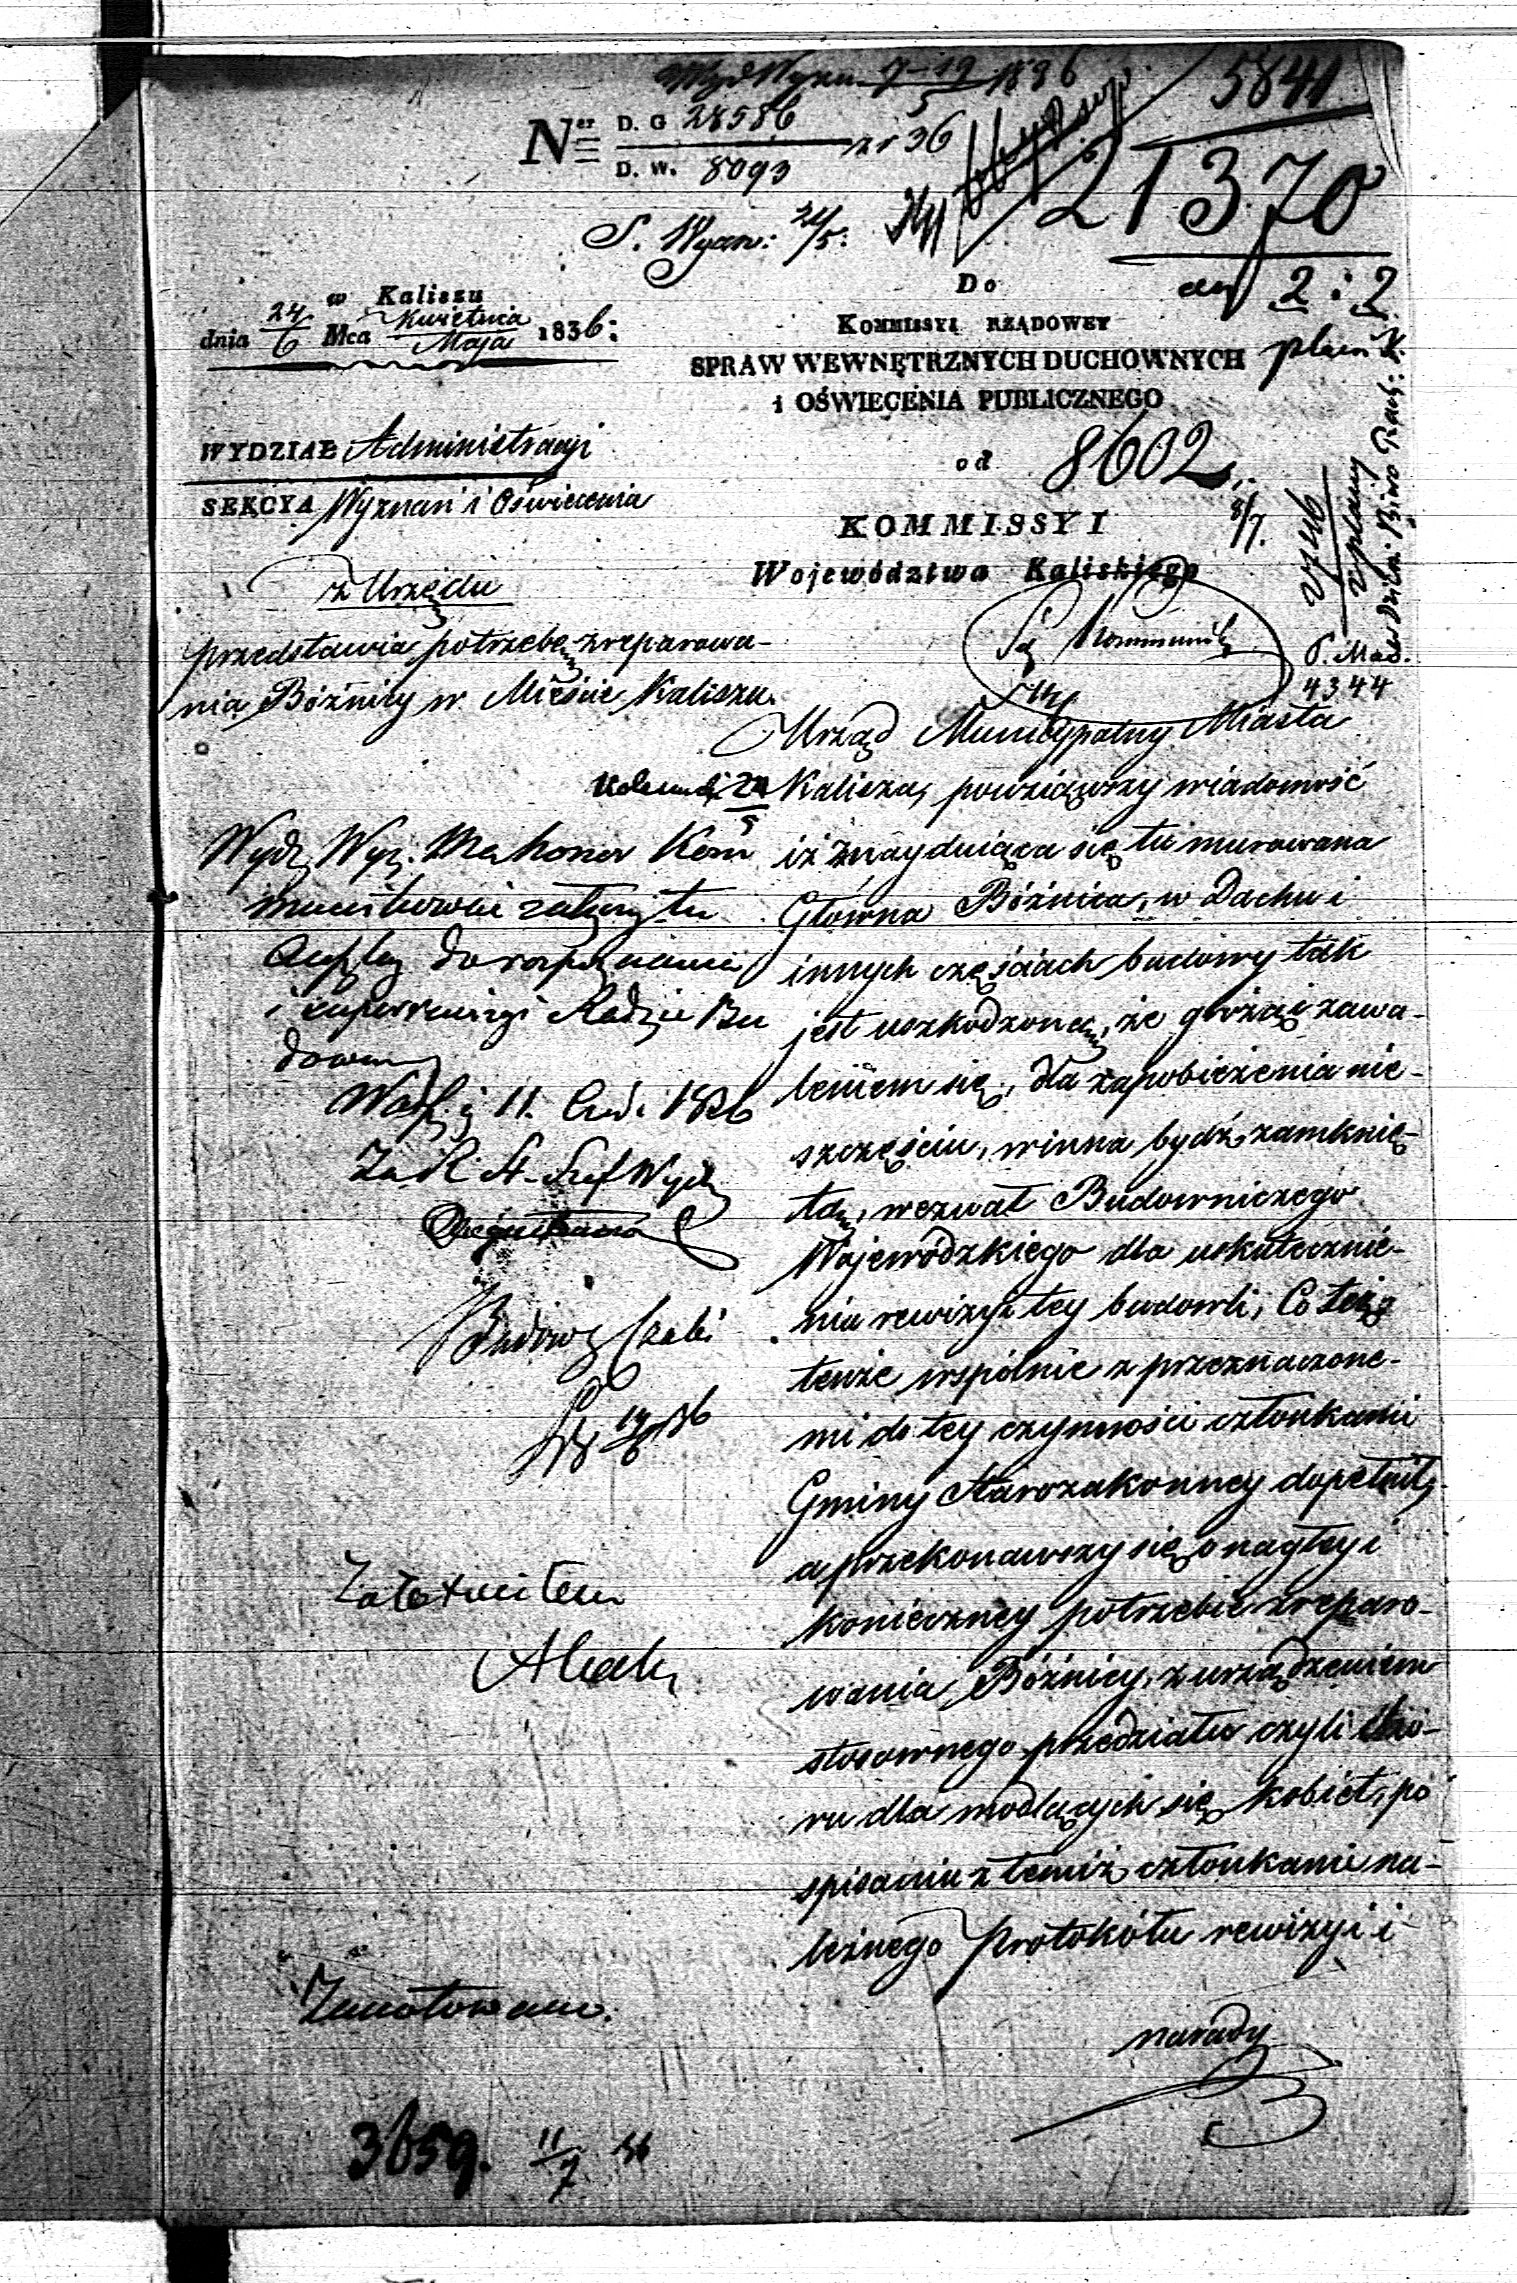 7-19/5 1836
5841
Ner D. G 28586 / D. W. 8093 nr 36
21370
S. Wyzn: 24/5:
Do
w Kaliszu
dnia 24/6 Mca Kwietnia/Maja 1836:
KOMMISSYI RZĄDOWEY
SPRAW WEWNĘTRZNYCH DUCHOWNYCH
i OŚWIECENIA PUBLICZNEGO
2 i 2
plan
WYDZIAŁ Administracyi
od 8602
SEKCYA Wyznań i Oświecenia
KOMMISSYI
8/7.
Województwa Kaliskiego
z Urzędu
przedstawia potrzebę zreparowa-
nia Bóżnicy w Mieście Kaliszu.
4344
Urząd Municypalny Miasta
Kalisza, powziąwszy wiadomość
iż znayduiąca się tu murowana
Główna Bóżnica, w Dachu i
innych częściach budowy tak
jest uszkodzoną, że grozi zawa-
leniem się, dla zapobieżenia nie-
szczęściu, winna bydź zamknię-
tą, wezwał Budowniczego
Wojewódzkiego dla uskutecznie-
nia rewizyi tey budowli; Co też
tenże wspólnie z przeznaczone-
mi do tey czynności członkami
Gminy Starozakonney dopełnił,
a przekonawszy się o nagłey i
konieczney potrzebie zreparo-
wania Bóżnicy, z urządzeniem
stosownego przedziału czyli chó-
ru dla modlących się kobiet, po
spisaniu z temiż członkami na-
leżnego Protokółu rewizyi i
narady
Wydz. Wyz. Ma honor Kom
do rozpoznania
i superrewizyi Radzie Bu
downi
11. 1836
Załatwiłem
Zanotowano.
3659. 11/7 36